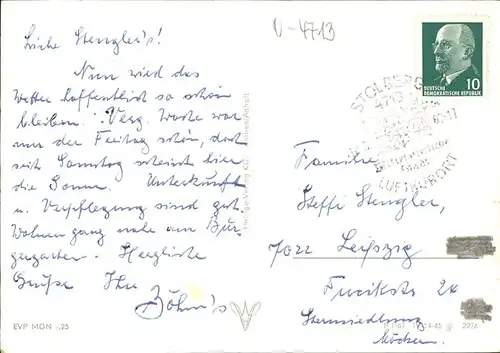 U-4713
Liebe Stengler's!
Nun wird das
Wetter hoffentlich so schön
bleiben. Verg. Woche war
nur der Freitag schön, doch
seit Samstag scheint hier
die Sonne. Unterkunft
u. Verpflegung sind gut.
Wohnen ganz nahe am Bür-
gergarten. Herzliche
Grüße Ihre
Böhm's
EVP MDN ,25
DEUTSCHE
DEMOKRATISCHE REPUBLIK
10
STOLBERG
4713
LUFTKURORT
Familie
Steffi Stengler,
7022 Leipzig
Sternsiedlung
Möckern